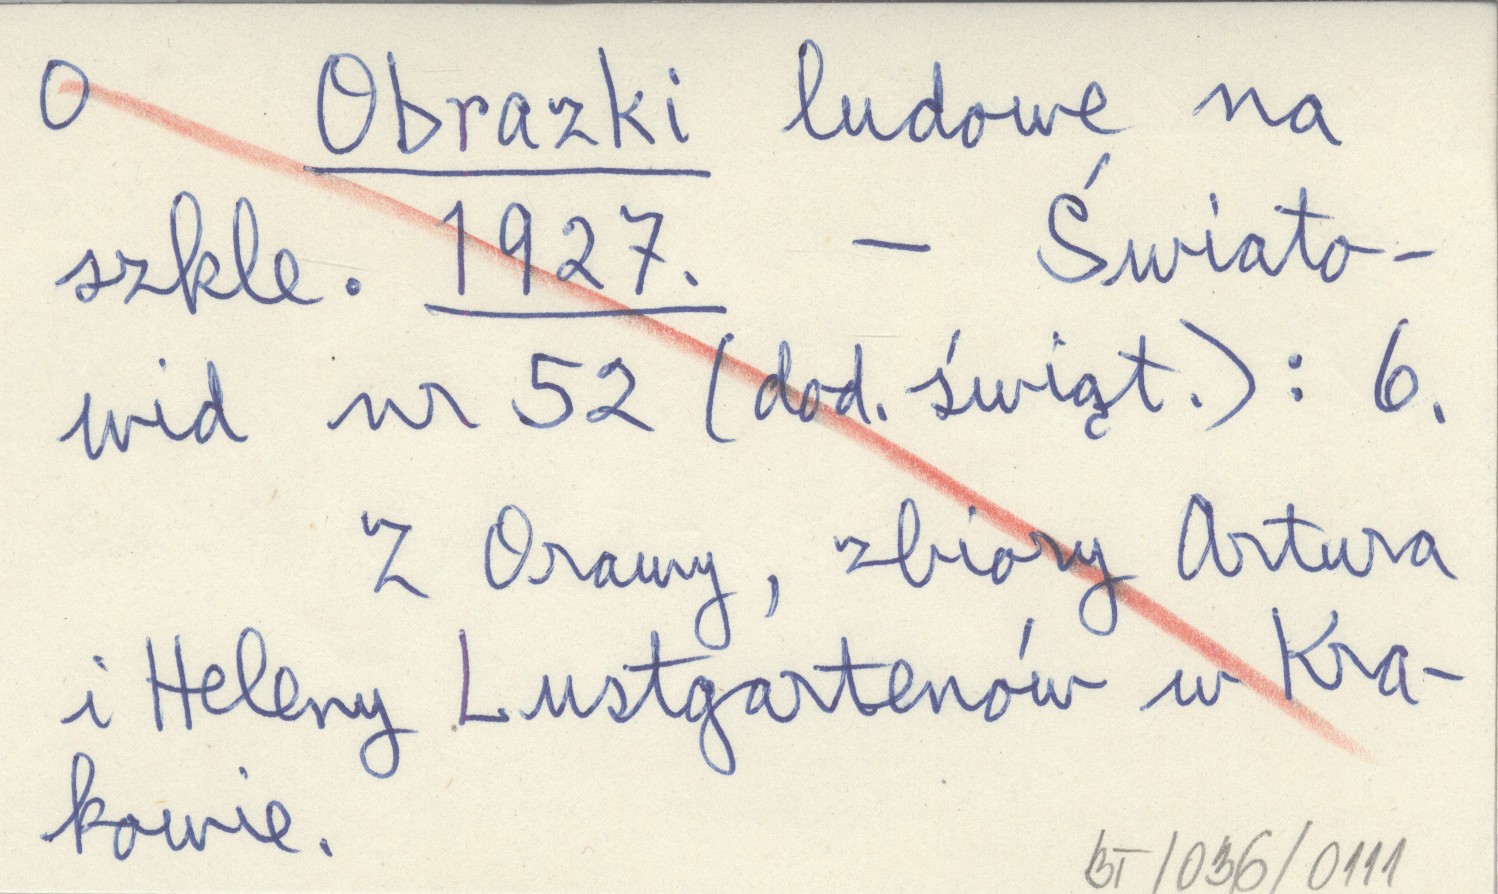 O Obrazki ludowe na
szkle. 1927. – Świato-
wid nr 52 (dod. świąt.): 6.
Z Orawy, zbiory Artura
i Heleny Lustgartenów w Kra-
kowie.
BT/036/0111